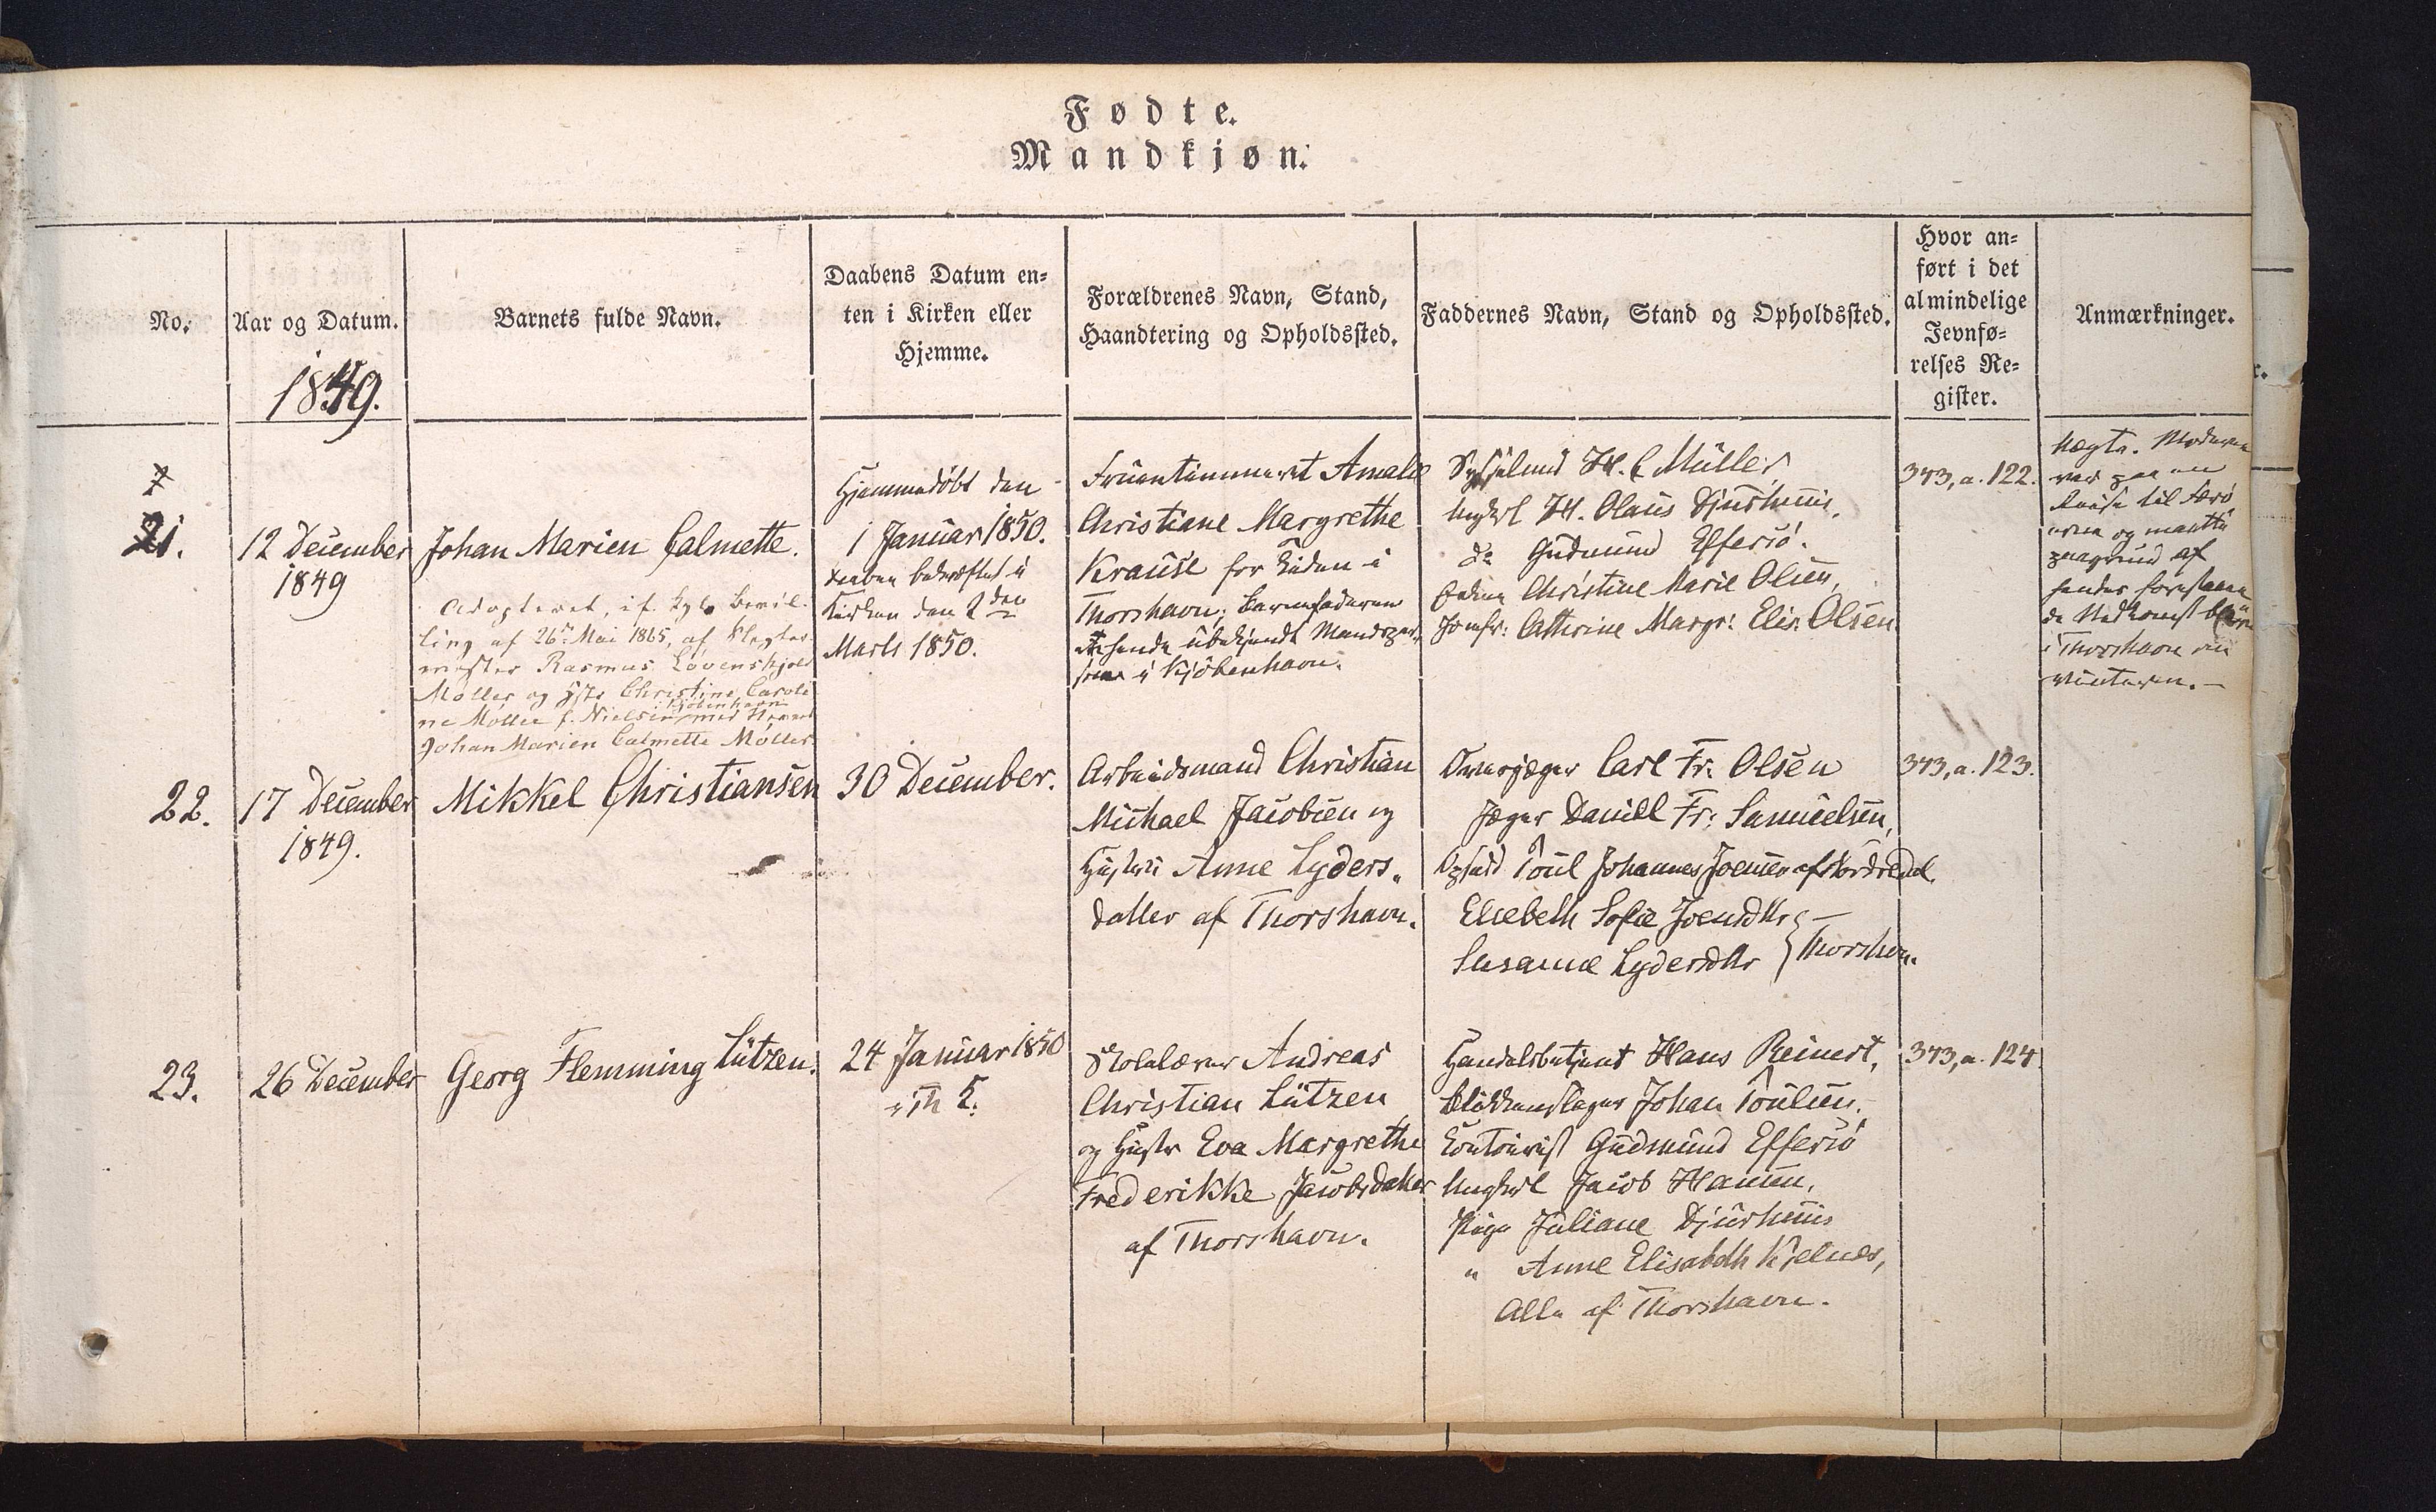 Fødte.
Mandkjøn.
No.
Aar og Datum.
1849.
Barnets fulde Navn.
Daabens Datum en-
ten i Kirken eller
Hjemme.
Forældrenes Navn, Stand,
Haandtering og Opholdssted.
Faddernes Navn, Stand og Opholdssted.
Hvor an-
ført i det
almindelige
Jevnfø-
relses Re-
gister.
Anmærkninger.
21.
12 December
1849
Johan Marien Calmette.
Adopteret, if. kgl. Bevil-
ling af 26de Mai 1865, af Slagter-
mester Rasmus Løvenskjold
Møller og Hstr Christine Caroli
ne Møller f. Nielsen Kjøbenhavn med Navnet
Johan Marien Calmette Møller.
Hjemmedøbt den
1 Januar 1850.
Daaben bekræftet i
Kirken den 2den
Marts 1850.
Fruentimmeret Amalie
Christiane Margrethe
Krause for Tiden i
Thorshavn; Barnefaderen
hende übekjendt Mandsper-
son i Kjöbenhavn.
Sysselmd H. C. Müller
Ungkarl H. Olaus Djurhuus.
do Gudmund Effersö.
Christine Marie Olsen,
Jomfr: Cathrine Margr: Elis: Olsen
343, a. 122.
Uægte. Moderen
var paa en
Reise til Færö
erne og maatte
paagrund af
hendes forestaaen
de Nedkomst blive
i Thorshavn om
Vinteren.
22.
17 December
1849.
Mikkel Christiansen
30 December.
Arbeidsmand Christian
Michael Jacobsen og
Hustru Anne Lyders-
datter af Thorshavn.
Overjæger Carl Fr: Olsen
Jæger Daniel Fr: Samuelsen,
Opsidd Poul Johannes Joensen af Nordredal.
Elsebeth Sofie Joensdttr
Susanne Lydersdttr } Thorshvn.
343, a. 123.
23.
26 December
Georg Flemming Lützen.
24 Januar 1850
i Th K.
Skolelærer Andreas
Christian Lützen
og Hustr Eva Margrethe
Frederikke Jacobsdatter
af Thorshavn.
Handelsbetjent Hans Reinert,
Blikkenslager Johan Poulsen.
Contoirist Gudmund Effersö
Ungkarl Jacob Hansen,
Pige Juliane Djurhuus
" Anne Elisabeth Kjelnæs,
Alle af Thorshavn.
343, a. 124